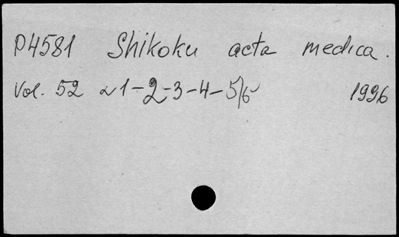 P4581 Shikoku acta medica.
Vol. 52 N 1-2-3-4-5/6 1996